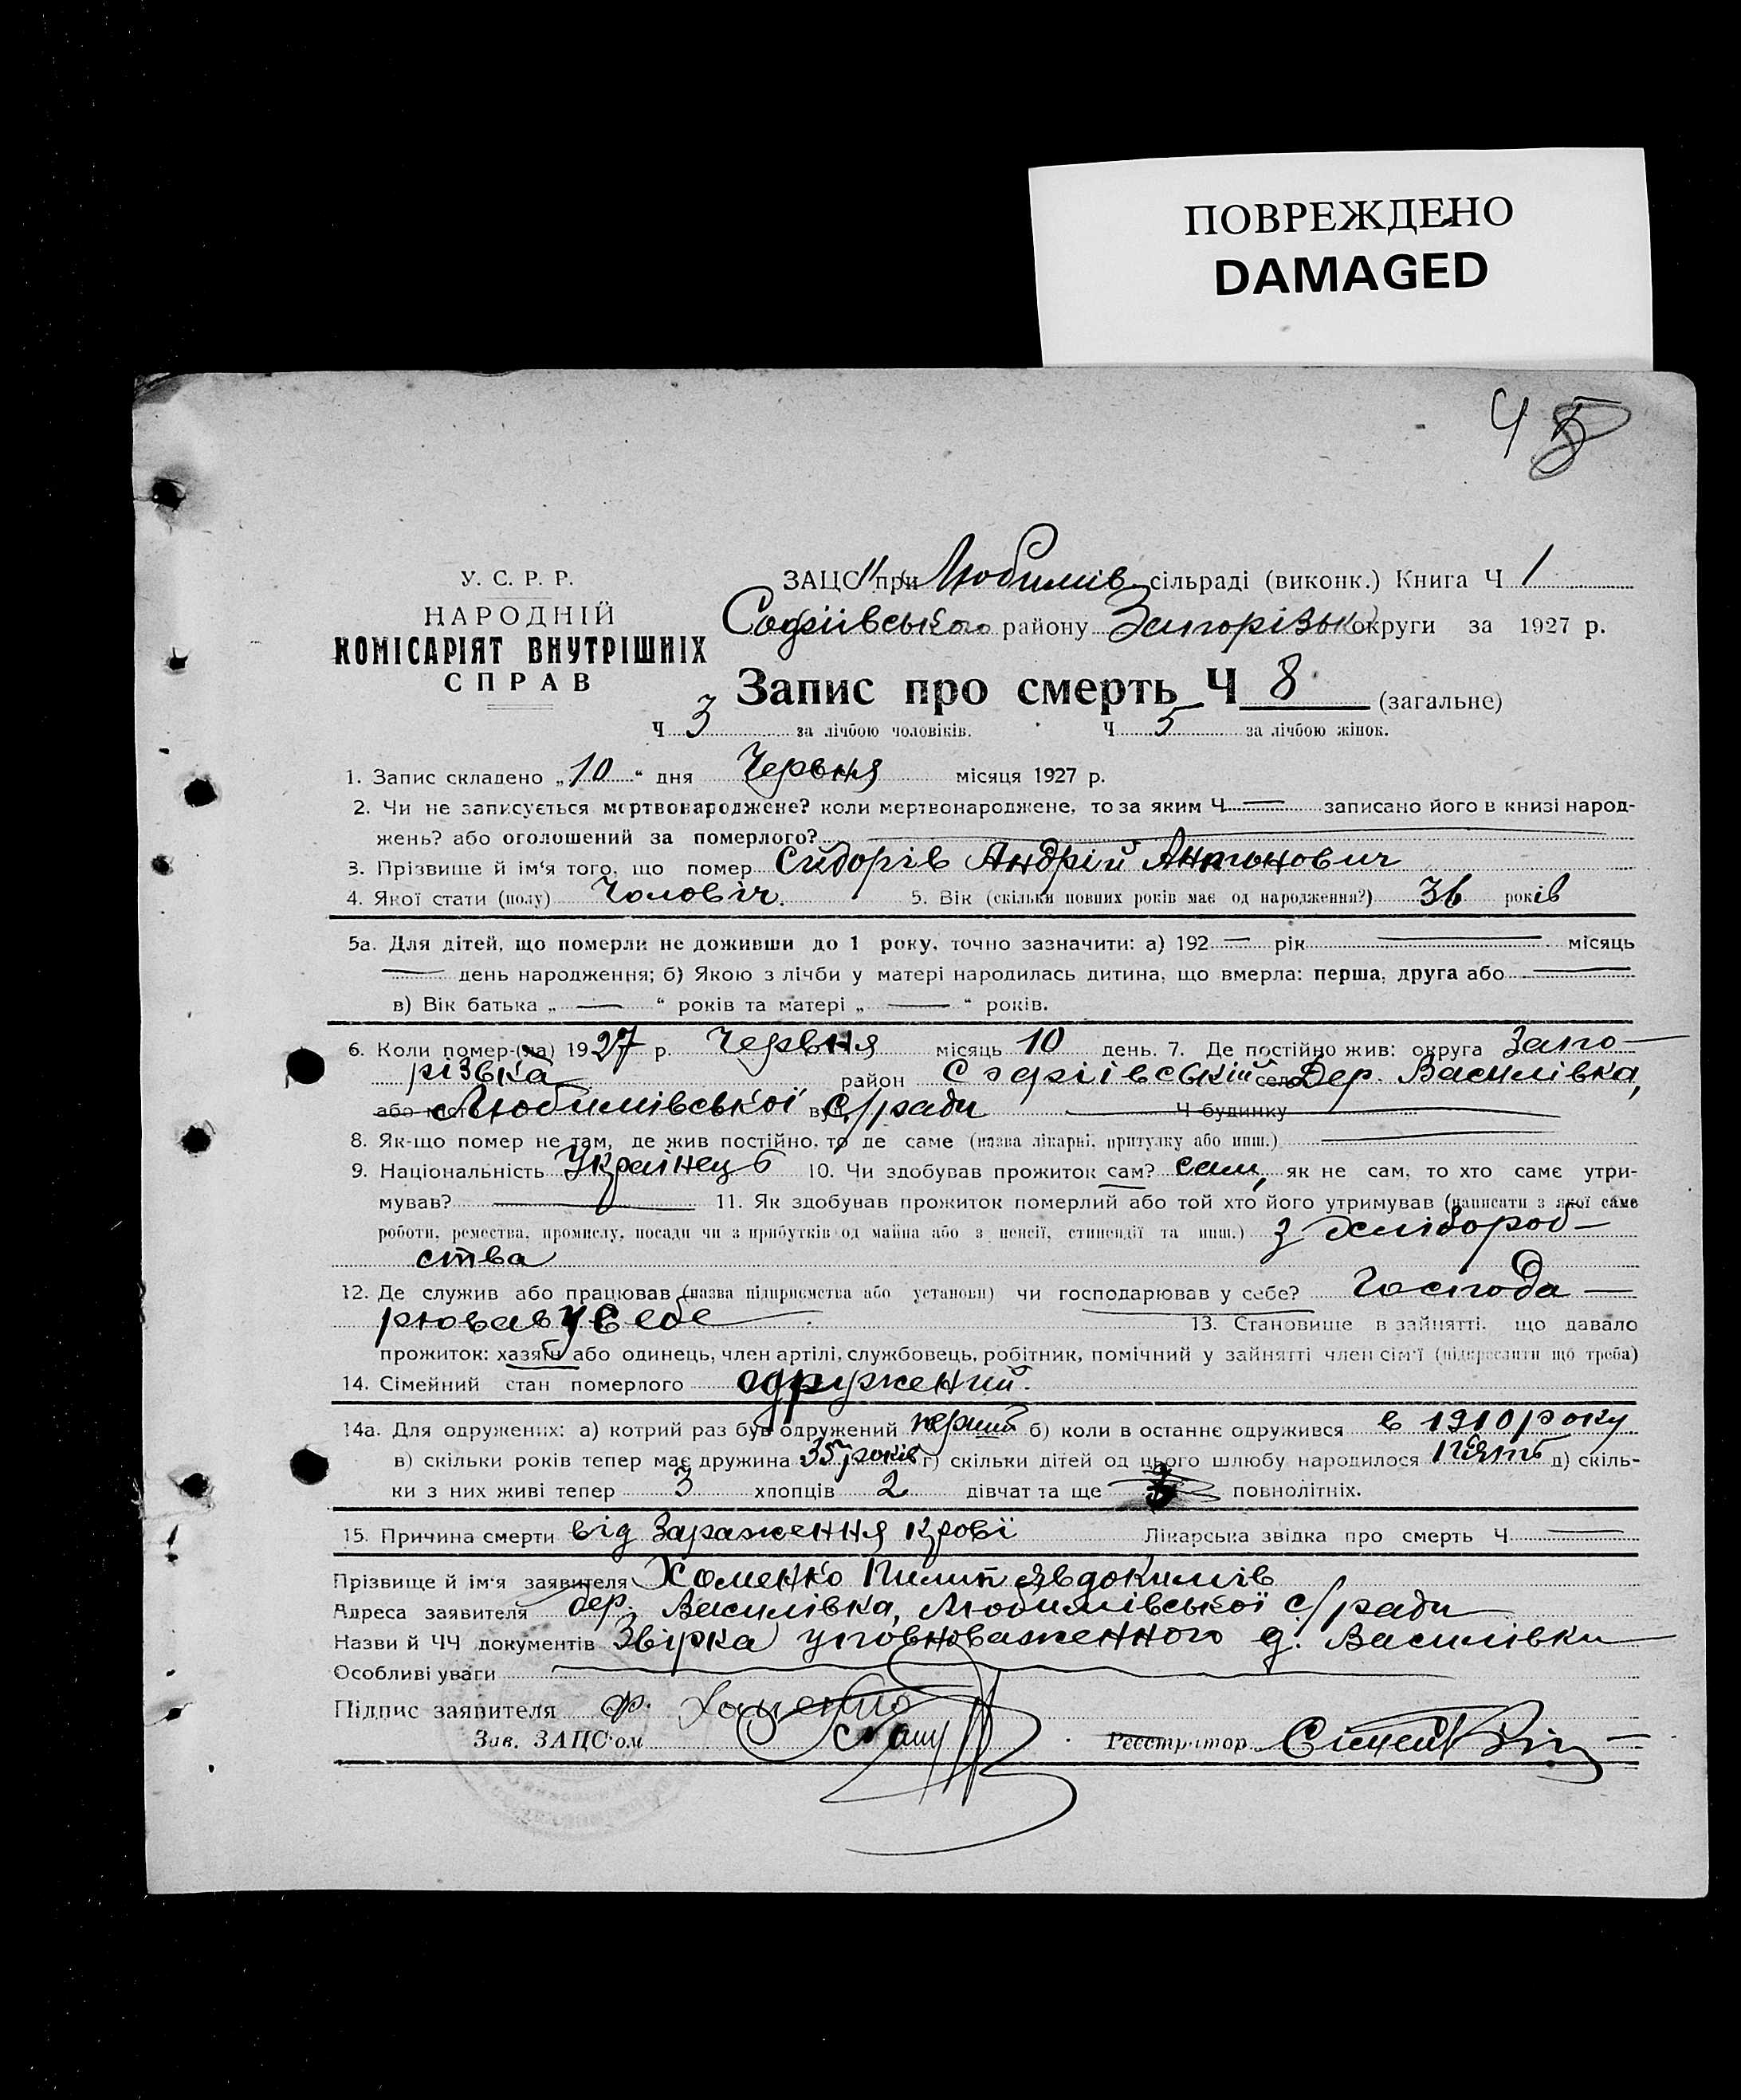 ПОВРЕЖДЕНО
DAMAGED
У. С. Р. Р.
НАРОДНІЙ
КОМІСАРІЯТ ВНУТРІШНІХ
СПРАВ
ЗАЦС при Любимів сільраді (виконк.) Книга Ч 1
Софіівського району Запорізьк округи за 1927 р.
Запис про смерть Ч 8 (загальне)
Ч 3 за лічбою чоловіків. Ч 5 за лічбою жінок.
1. Запис складено „10“ дня Червня місяця 1927 р.
2. Чи не записується мертвонароджене? коли мертвонароджене, то за яким Ч — записано його в книзі народ-
жень? або оголошений за померлого?
3. Прізвище й ім'я того, що помер Сидорів Андрій Антонович
4. Якої стати (полу) Чоловіч. 5. Вік (скільки повних років має од народження?) 36 років
5а. Для дітей, що померли не доживши до 1 року, точно зазначити: а) 192 — рік — місяць
— день народження; б) Якою з лічби у матері народилась дитина, що вмерла: перша, друга або —
в) Вік батька „ — “ років та матері „ — “ років.
6. Коли помер-(ла) 1927 р. Червня місяць 10 день. 7. Де постійно жив: округа Запо-
різька район Софіівський село Дер. Василівка,
або міст Любимівської вул. с/ради Ч будинку
8. Як-що помер не там, де жив постійно, то де саме (назва лікарні, притулку або инш.) —
9. Національність Українець 10. Чи здобував прожиток сам? сам, як не сам, то хто саме утри-
мував? — 11. Як здобував прожиток померлий або той хто його утримував (написати з якої саме
роботи, ремества, промислу, посади чи з прибутків од майна або з пенсії, стипендії та инш.) з хлібороб-
ства
12. Де служив або працював (назва підприємства або установи) чи господарював у себе? Господа-
рював у себе 13. Становище в зайнятті, що давало
прожиток: хазяїн або одинець, член артілі, службовець, робітник, помічний у зайнятті член сім'ї (підкреслити що треба)
14. Сімейний стан померлого одружений.
14а. Для одружених: а) котрий раз був одружений перший б) коли в останнє одружився в 1910 року
в) скільки років тепер має дружина 35 років г) скільки дітей од цього шлюбу народилося Пять д) скіль-
ки з них живі тепер 3 хлопців 2 дівчат та ще повнолітніх.
15. Причина смерти від Зараження крові Лікарська звідка про смерть Ч —
Прізвище й ім'я заявителя Хоменко Пилип Явдокимів
Адреса заявителя дер. Василівка, Любимівської с/ради
Назви й ЧЧ документів Звірка уповноваженного д. Василівки
Особливі уваги
Підпис заявителя Ф. Хоменко
Зав. ЗАЦС'ом Реєстратор